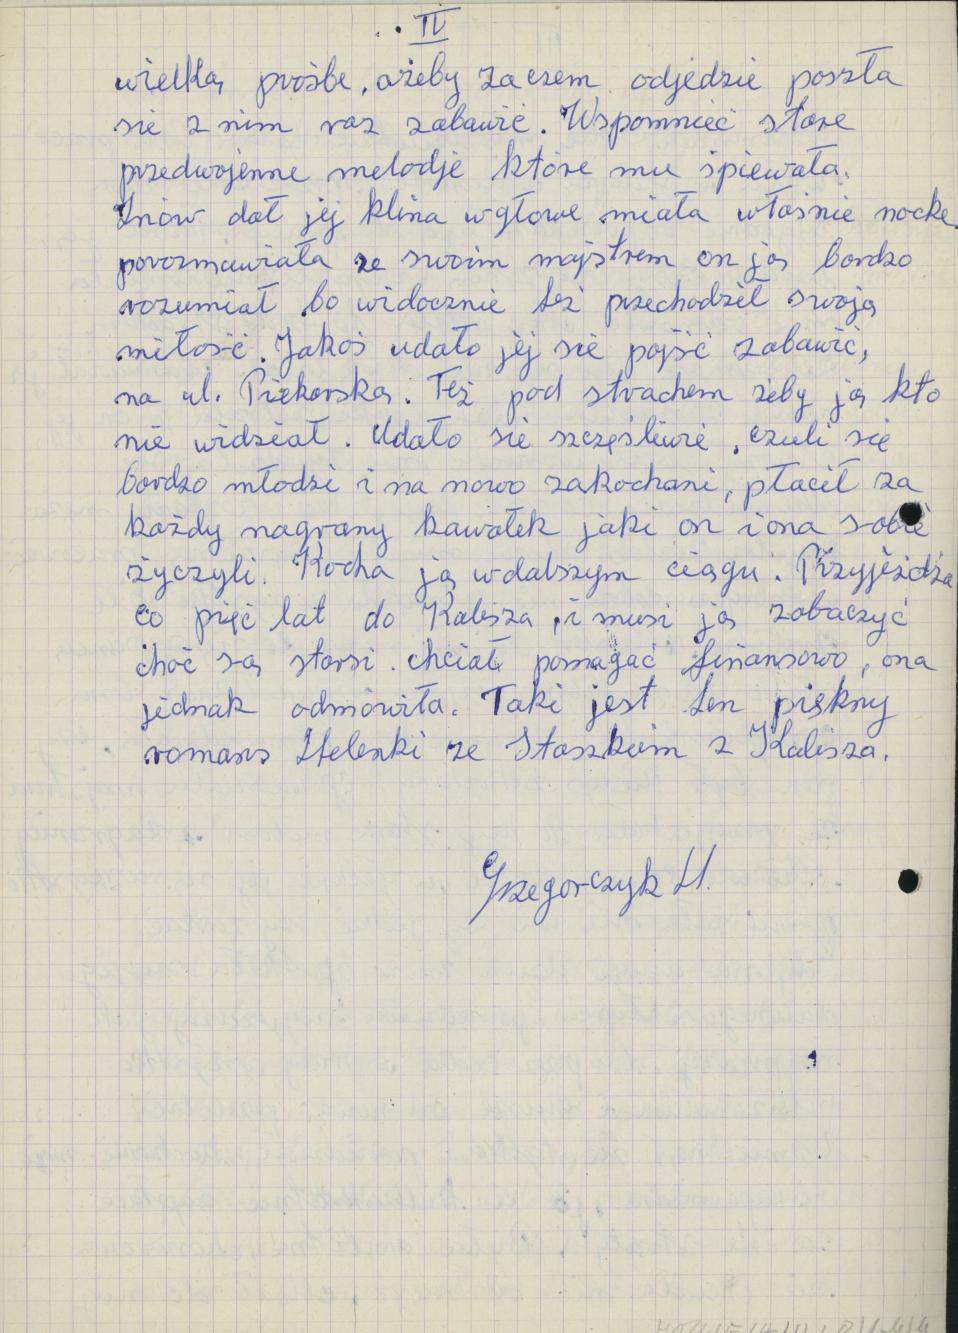 II
wielką prośbe, ażeby za czem odjedzie poszła
się z nim raz zabawić. Wspomnieć stare
przedwojenne melodje które mu śpiewała.
Znów dał jej klina w głowe miała właśnie nocke
porozmawiała ze swoim majstrem on ją bardzo
rozumiał bo widocznie też przechodził swoją
miłość. Jakoś udało jej sie pójść zabawić,
na ul. Piekarską. Też pod strachem żeby ją kto
nie widział. Udało sie szczęśliwie, czuli się
bardzo młodzi i na nowo zakochani, płacił za
każdy nagrany kawałek jaki on i ona sobie
życzyli. Kocha ją wdalszym ciągu. Przyjeżdża
co pięć lat do Kalisza, i musi ją zobaczyć
choć są starsi. chciał pomagać finansowo, ona
jednak odmówiła. Taki jest ten piękny
romans Helenki ze Staszkiem z Kalisza.
Grzegorczyk H.